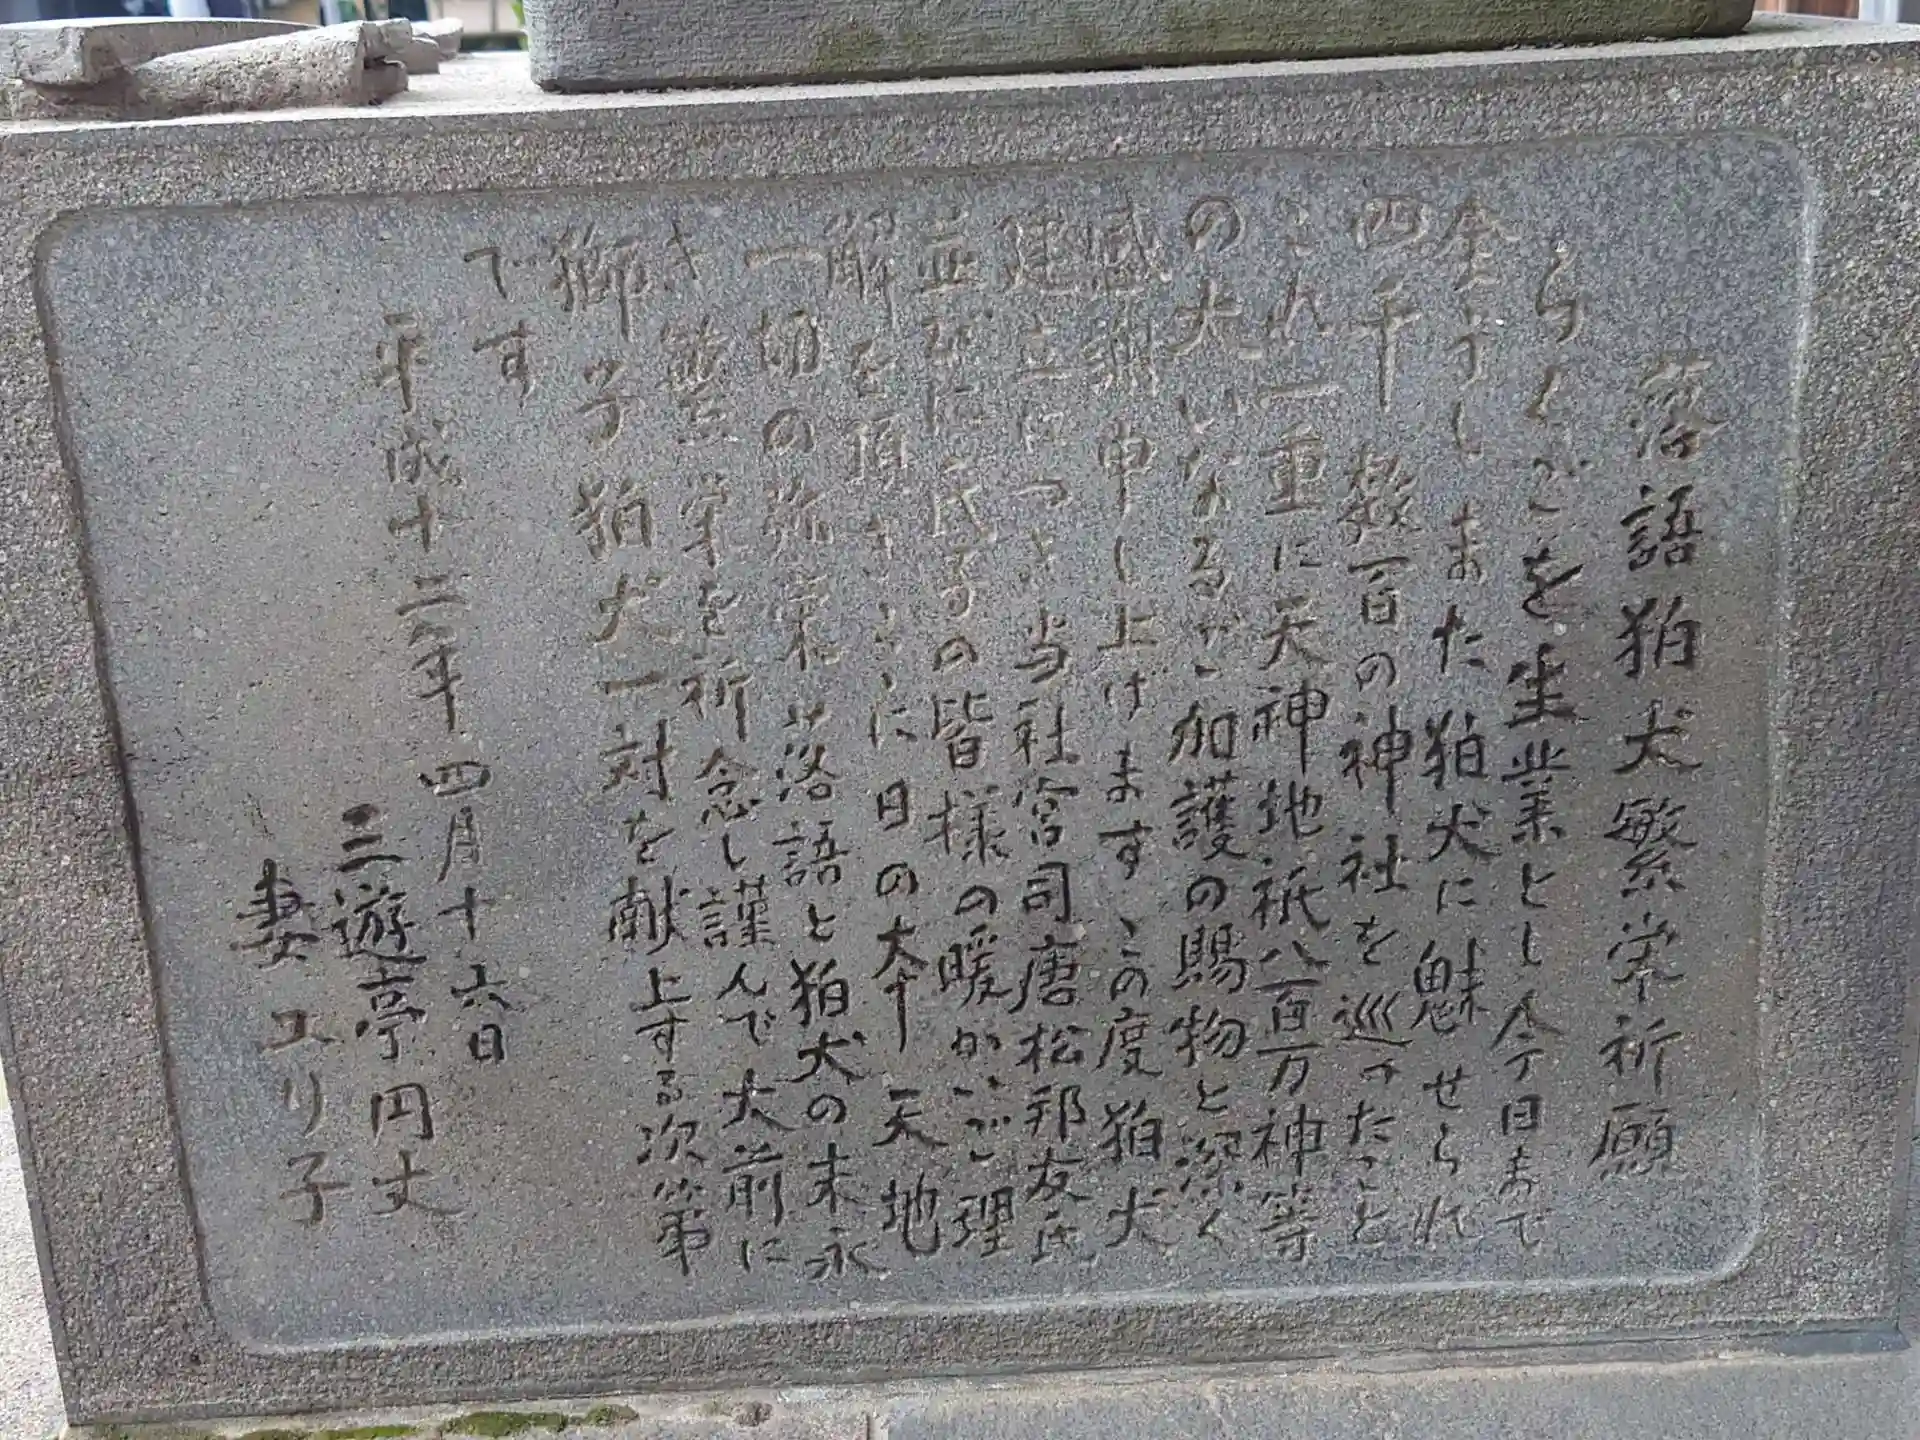 落語狛犬繁栄祈願
らくごを生業とし今日まで
全うしまた狛犬に魅せられ
四千数百の神社を巡ったこと
これ一重に天神地祇八百万神等
の大いなるが加護の賜物と深く
感謝申し上げますこの度狛犬
建立につき当社宮司唐松邦友氏
並びに氏子の皆様の暖かいご理
解を頂きました日の本天地
一切の弥栄落語と狛犬の末永
き繁栄を祈念し謹んで大前に
獅子狛犬一対を献上する次第
です
平成十二年四月十六日
三遊亭円丈
妻ユリ子